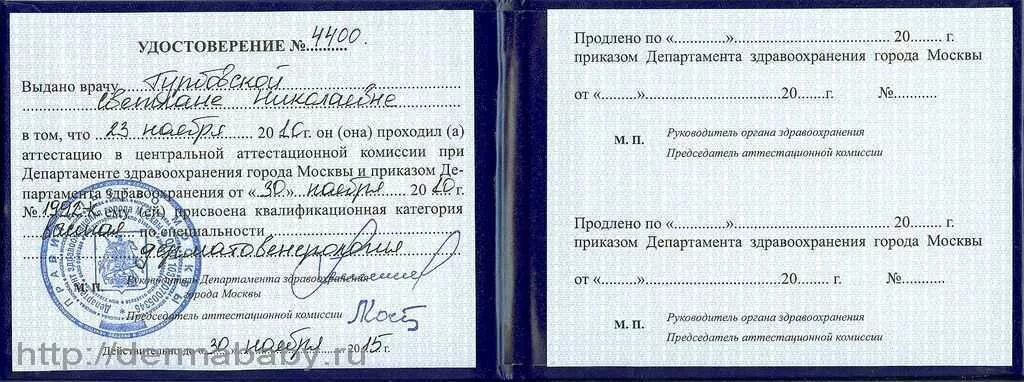 УДОСТОВЕРЕНИЕ № 4400.
Выдано врачу Гуртовской
Светлане Николаевне
в том, что 23 ноября 2010 г. он (она) проходил (а)
аттестацию в центральной аттестационной комиссии при
Департаменте здравоохранения города Москвы и приказом Де-
партамента здравоохранения от «30» ноября 2010 г.
№ 1992-к ему (ей) присвоена квалификационная категория
высшая по специальности
дерматовенерология
Руководитель Департамента здравоохранения
М. П. города Москвы
Председатель аттестационной комиссии
Действительно до «30» ноября 2015 г.
http://dermababy.ru
Продлено по «..........».......................................... 20...... г.
приказом Департамента здравоохранения города Москвы
от «.......»............................ 20......г. №..........
М. П. Руководитель органа здравоохранения
Председатель аттестационной комиссии
Продлено по «..........».......................................... 20...... г.
приказом Департамента здравоохранения города Москвы
от «.......»............................ 20...... г. №..........
М. П. Руководитель органа здравоохранения
Председатель аттестационной комиссии